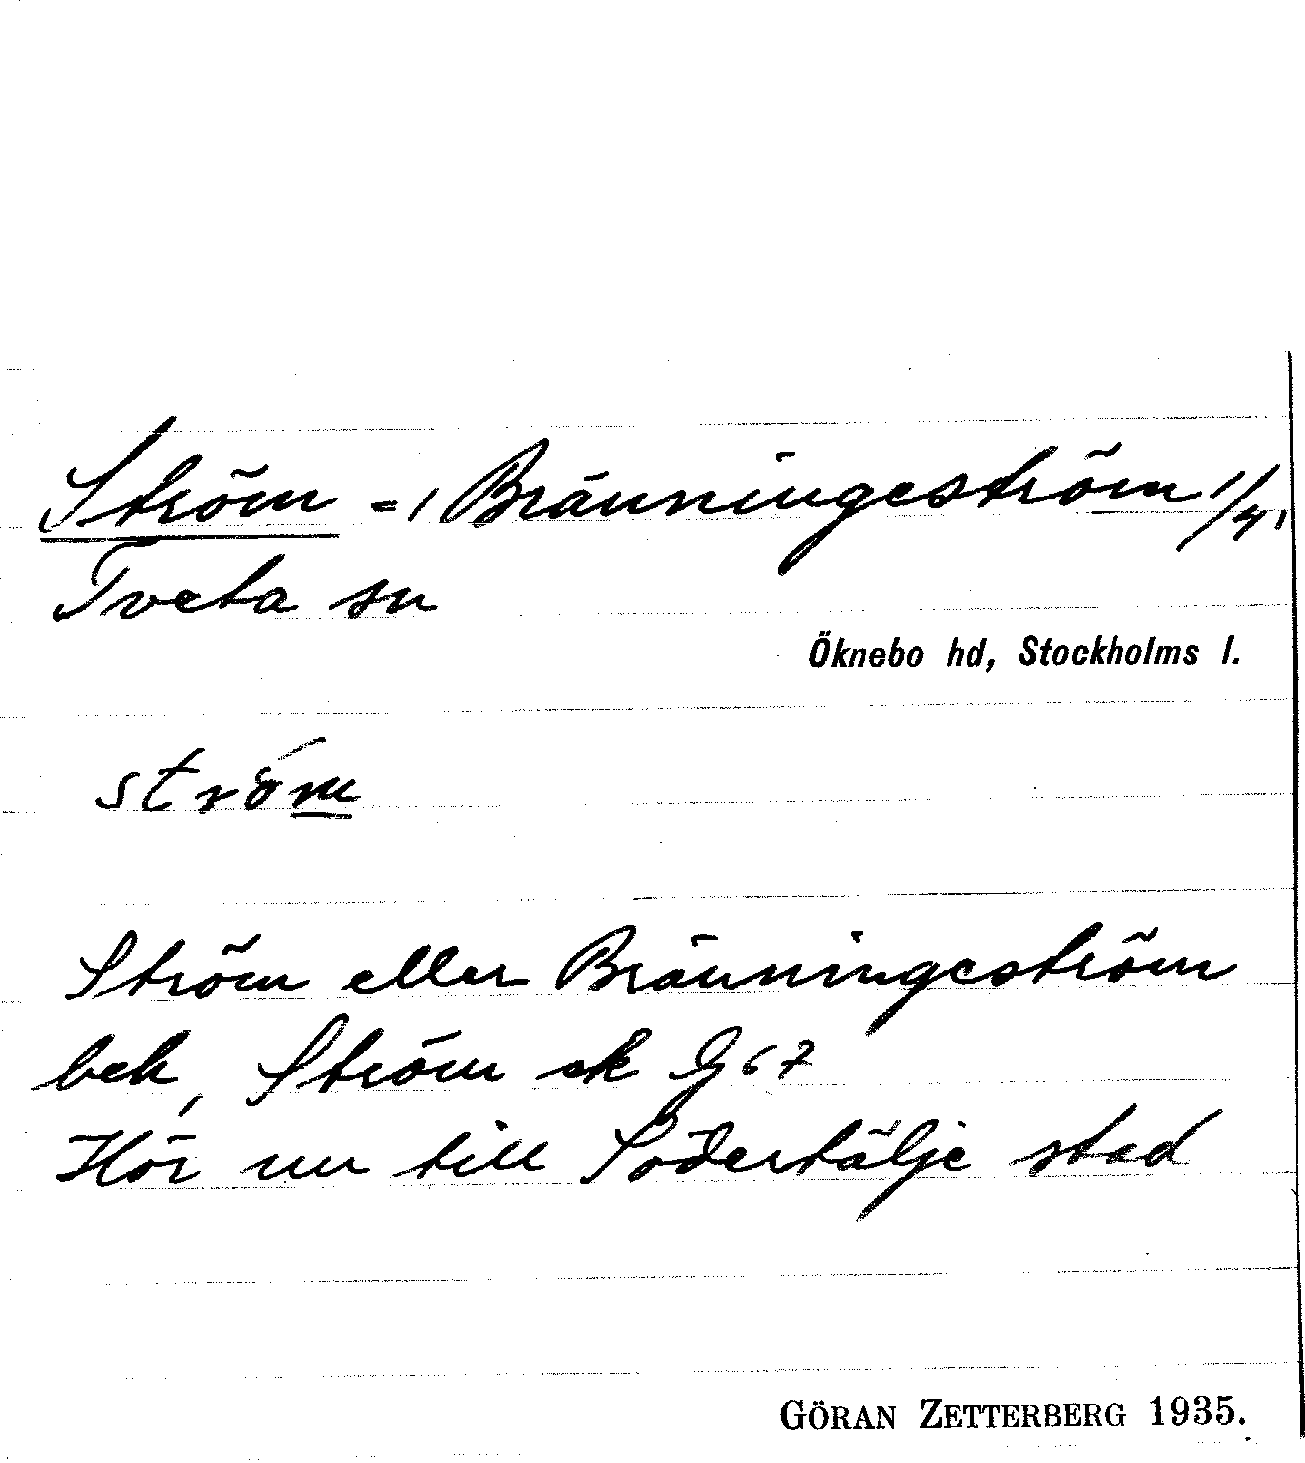 Ström = / Bränningeström 1/4 1
Tveta sn
Öknebo hd, Stockholms l.
ström
Ström eller Bränningeström
bek, Ström ek G 67
Hör nu till Södertälje stad
GÖRAN ZETTERBERG 1935.